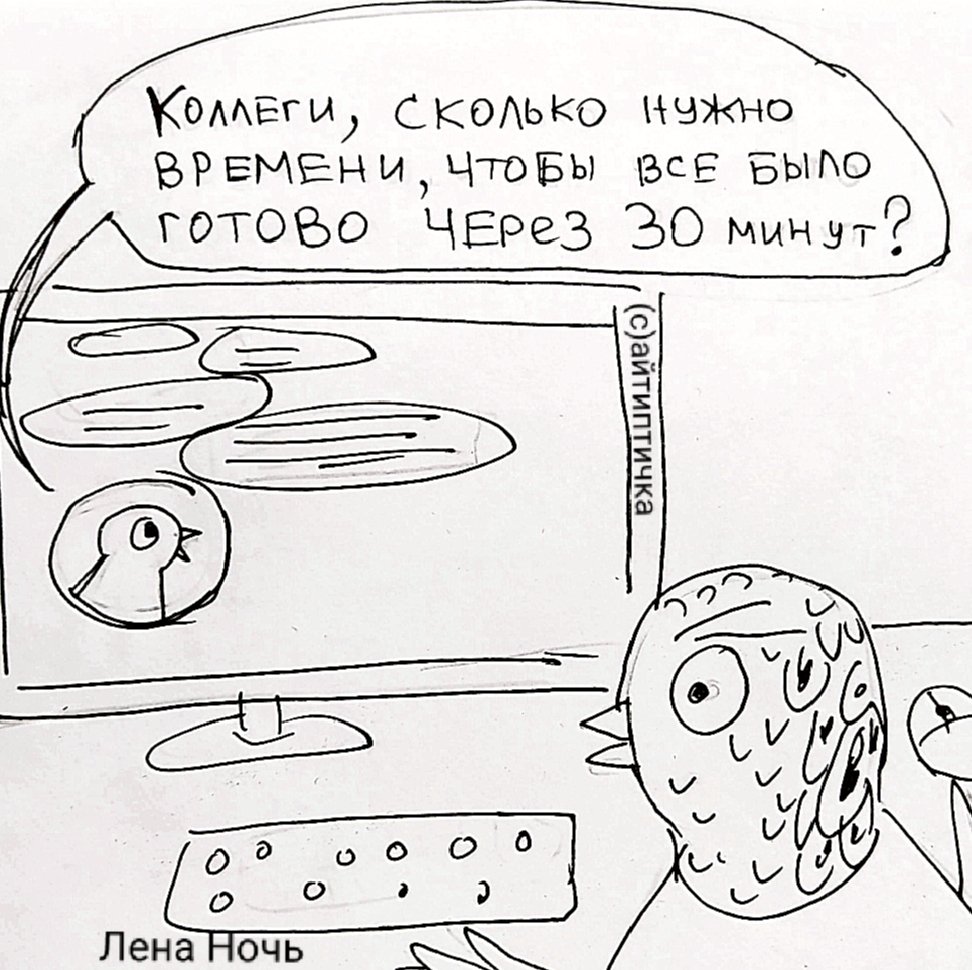 Коллеги, сколько нужно
времени, чтобы все было
готово через 30 минут?
(с)айтиптичка
Лена Ночь